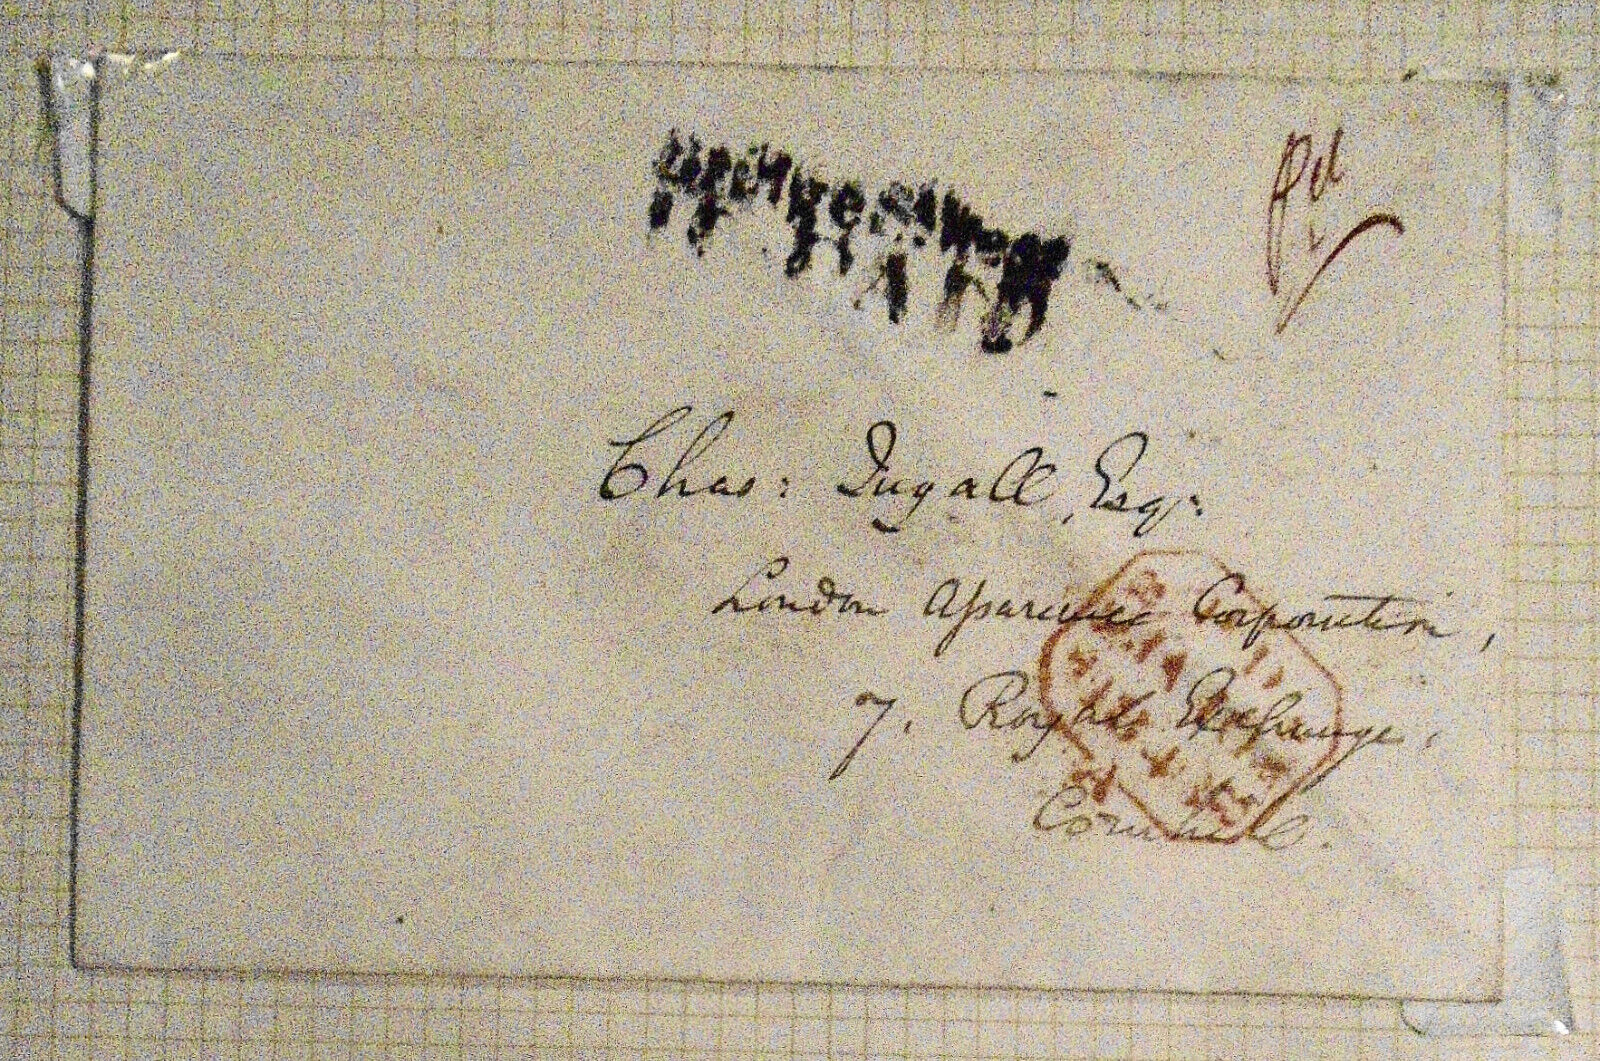 Pd
1
Chas: Ingall, Esqr:
London Assurance Corporation,
7, Royal Exchange,
Cornhill.